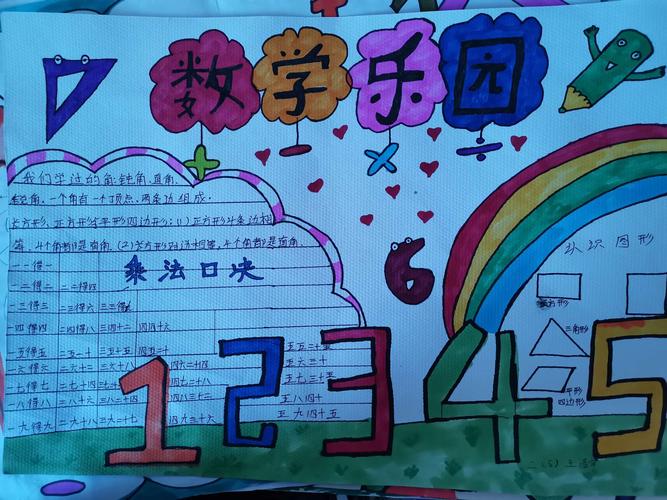 数学乐园
+ - × ÷
我们学过的角:钝角、直角、
锐角。一个角有一个顶点,两条边组成。
长方形、正方形、平行四边形:(1)正方形4条边相
等,4个角都是直角。(2)长方形对边相等,4个角都是直角。
乘法口决
一一得一
一二得二 二二得四
一三得三 二三得六 三三得
一四得四 二四得八 三四十二 四四十六
一五得五 二五一十 三五十五 四五二十 五五二十五
一六得六 二六十二 三六十八 四六二十四 五六三十
一七得七 二七十四 三七 四七二十八 五七三十五
一八得八 二八十六 三八二十四 四八三十 五八四十
一九得九 二九十八 三九二十七 四九三十六 五九四十五
6
认识图形
长方形
三角形
平形
四边形
1 2 3 4 5
二(5)王